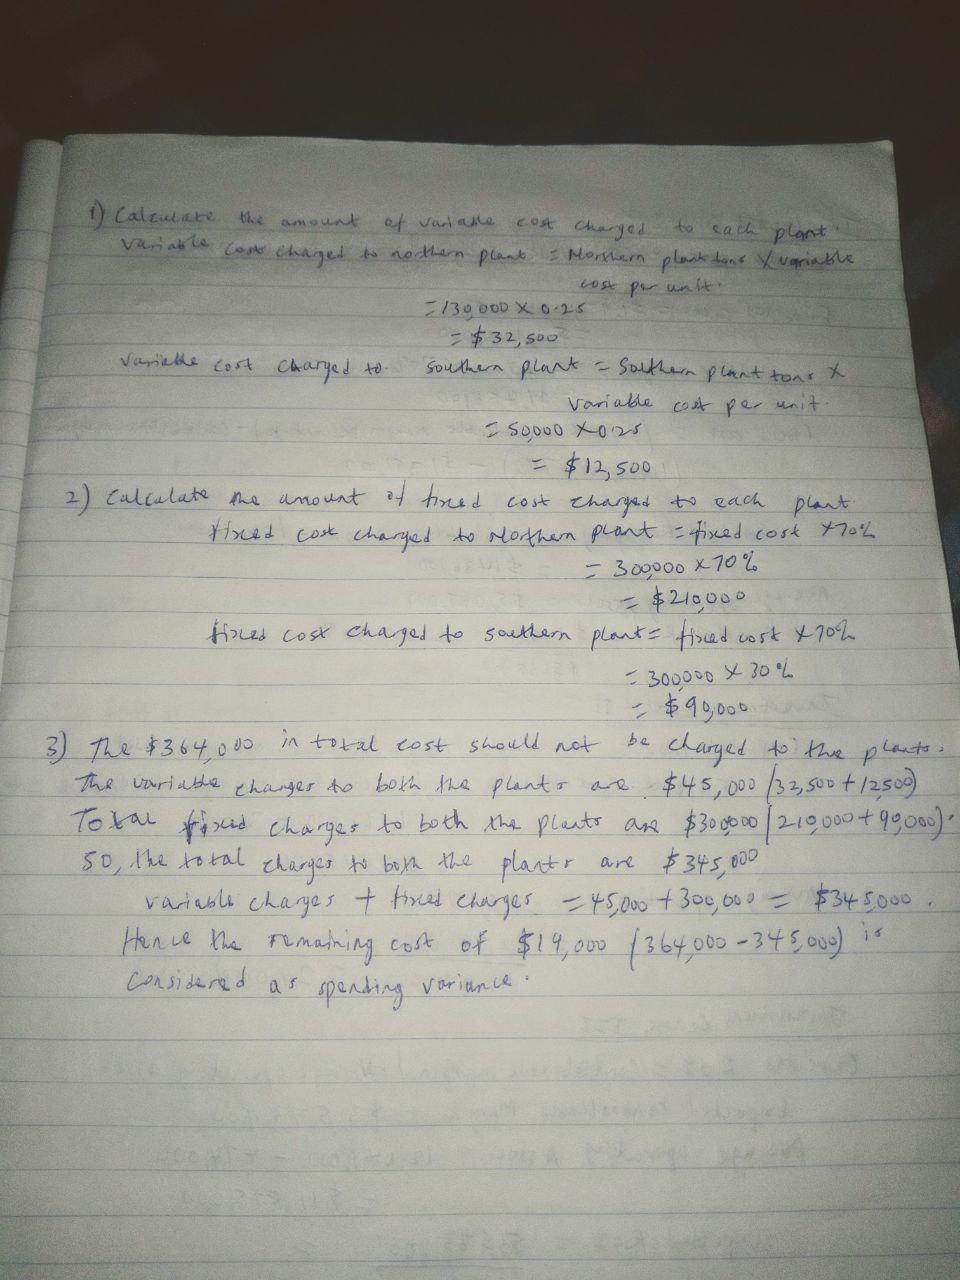 1) Calculate the amount of variable cost charged to each plant.
Variable cost charged to northern plant = Northern plant tons X variable
cost per unit.
= 130,000 X 0.25
= $32,500
Variable cost charged to southern plant = Southern plant tons X
variable cost per unit.
= 50,000 X 0.25
= $12,500
2) Calculate the amount of fixed cost charged to each plant.
Fixed cost charged to Northern plant = fixed cost X 70%
= 300,000 X 70%
= $210,000
Fixed cost charged to southern plant = fixed cost X 70%
= 300,000 X 30%
= $90,000
3) The $364,000 in total cost should not be charged to the plants.
The variable charges to both the plants are $45,000 (32,500 + 12,500)
Total fixed charges to both the plants are $300,000 (210,000 + 90,000).
So, the total charges to both the plants are $345,000
variable charges + fixed charges = 45,000 + 300,000 = $345,000.
Hence the remaining cost of $19,000 (364,000 - 345,000) is
considered as spending variance.